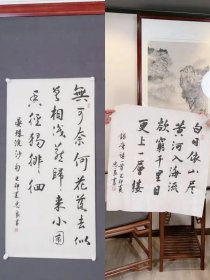 無可奈何花落去似
曾相识燕歸来小園
香径獨徘徊
晏殊浣沙句
白日依山尽
黄河入海流
欲窮千里目
更上一層楼